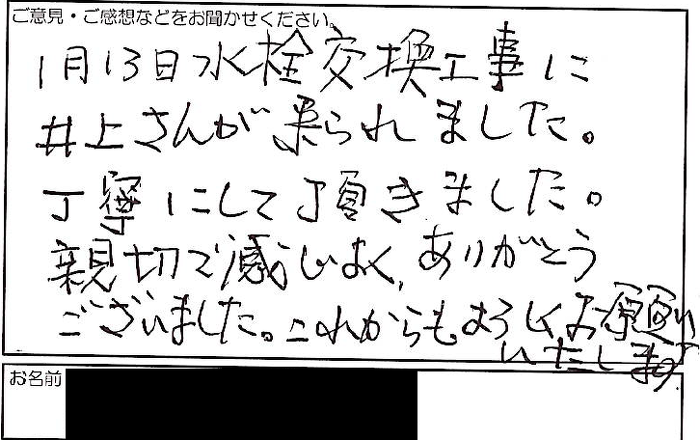 ご意見・ご感想などをお聞かせください。
1月13日水栓交換工事に
井上さんが来られました。
丁寧にして頂きました。
親切で感じよく、ありがとう
ございました。これからもよろしくお願い
いたします。
お名前